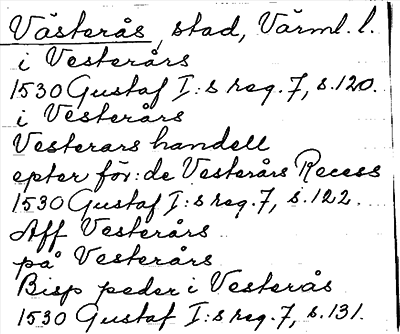 Västerås, stad, Värml. l.
i Vesterårs
1530 Gustaf I:s reg. 7, s. 120.
i Vesterårs
Vesterars handell
epter för:de Vesterårs Recess
1530 Gustaf I:s reg. 7, s. 122.
Aff Vesterårs
på Vesterårs
Bisp peder i Vesterås
1530 Gustaf I:s reg. 7, s. 131.